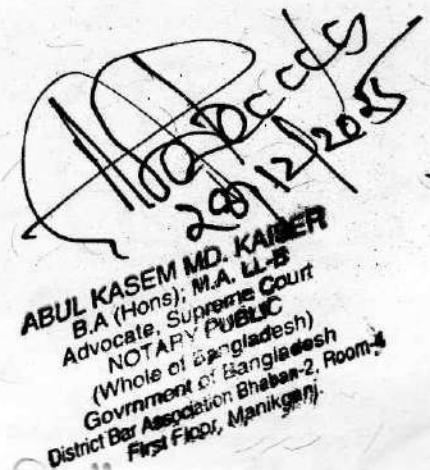 ABUL KASEM MD. KAISER
B.A (Hons); M.A. LL-B
Advocate, Supreme Court
NOTARY PUBLIC
(Whole of Bangladesh)
Govrnment of Bangladesh
District Bar Association Bhaban-2, Room-4
First Floor, Manikganj.